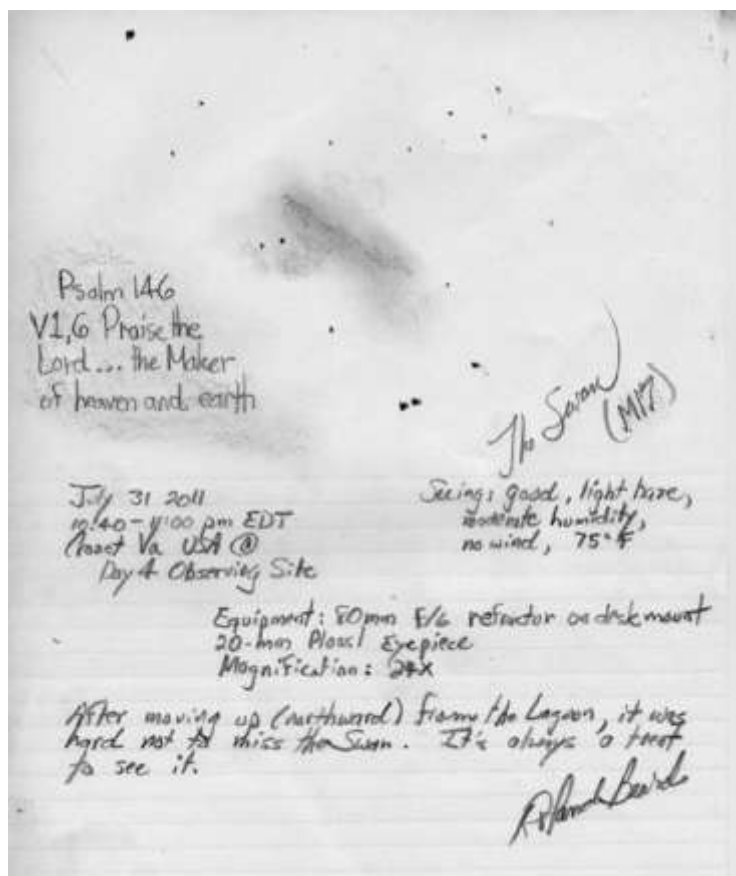 Psalm 146
V1,6 Praise the
Lord... the Maker
of heaven and earth
The Swan
(M17)
July 31 2011
10:40-11:00 pm EDT
Crozet Va USA @
Day 4 Observing Site
Seeing: good, light haze,
moderate humidity,
no wind, 75°F
Equipment: 80mm F/6 refractor on desk mount
20-mm Plossl Eyepiece
Magnification: 24X
After moving up (northward) from the Lagoon, it was
hard not to miss the Swan. It's always a treat
to see it.